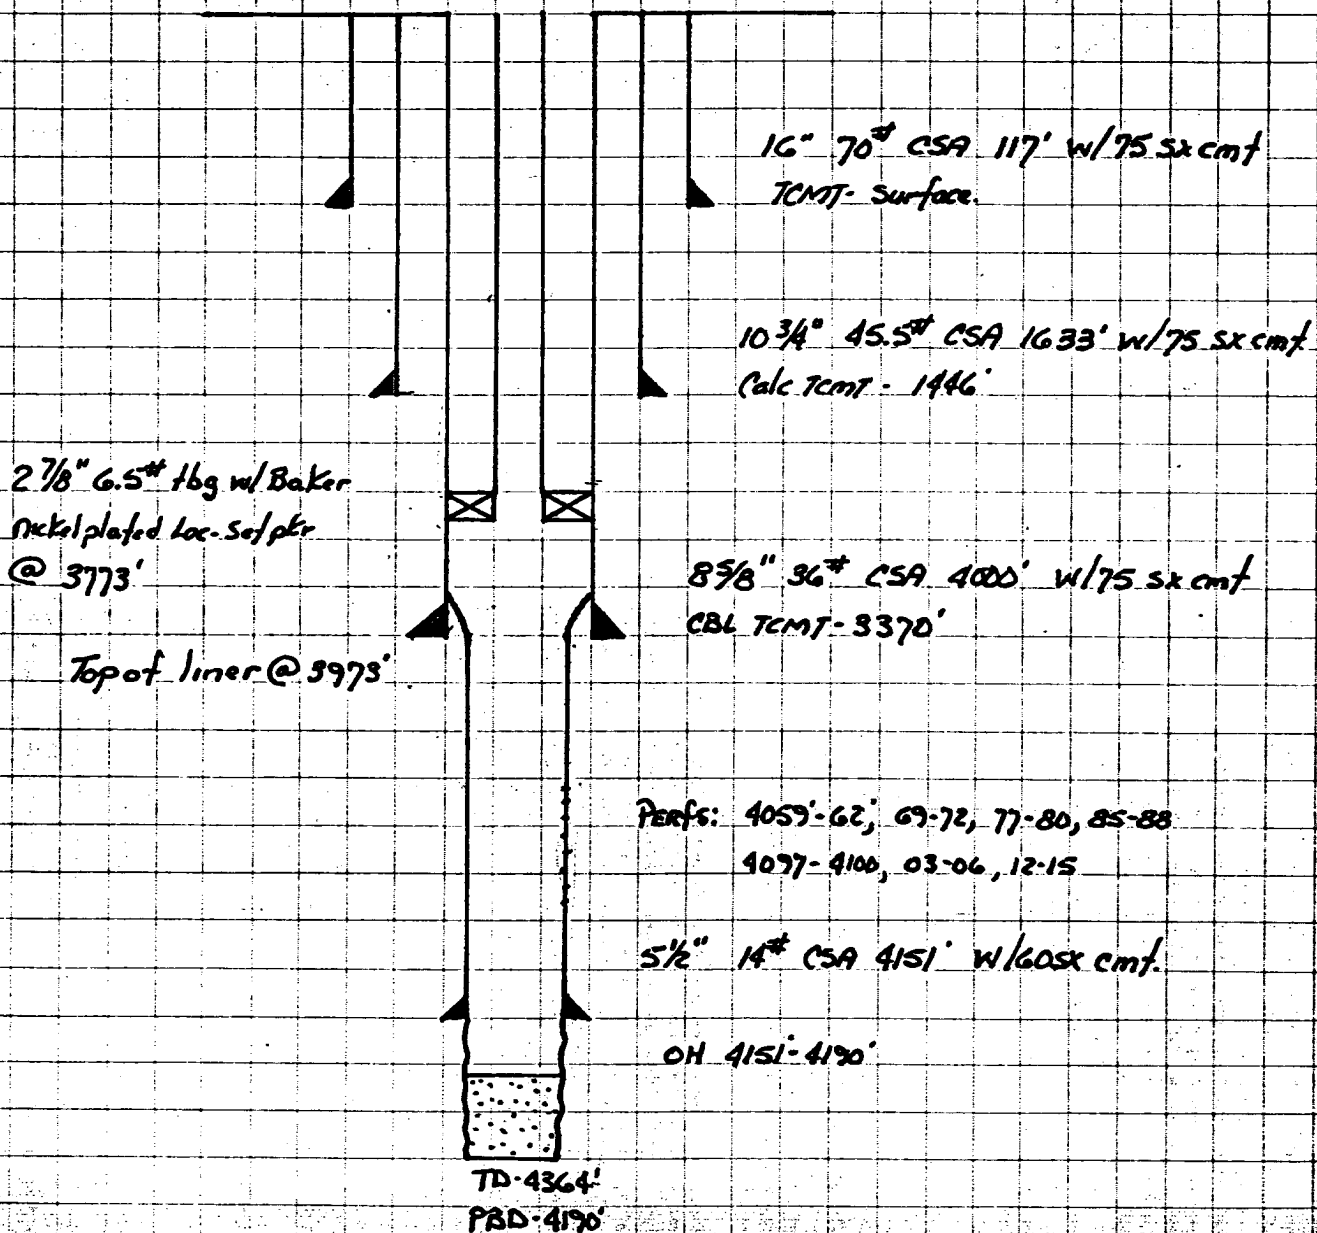 16" 70# CSA 117' w/75 sx cmt
TCMT- Surface.
10 3/4" 45.5# CSA 1633' w/75 sx cmt
Calc TCMT - 1446'
2 7/8" 6.5# tbg w/ Baker
nickel plated Loc-Set pkr
@ 3773'
8 5/8" 36# CSA 4000' w/75 sx cmt
CBL TCMT- 3370'
Top of liner @ 3973'
Perfs: 4059'-62', 69-72, 77-80, 85-88
4097-4100, 03-06, 12-15
5 1/2" 14# CSA 4151' w/60sx cmt.
OH 4151'-4190'
TD-4364'
PBD-4190'